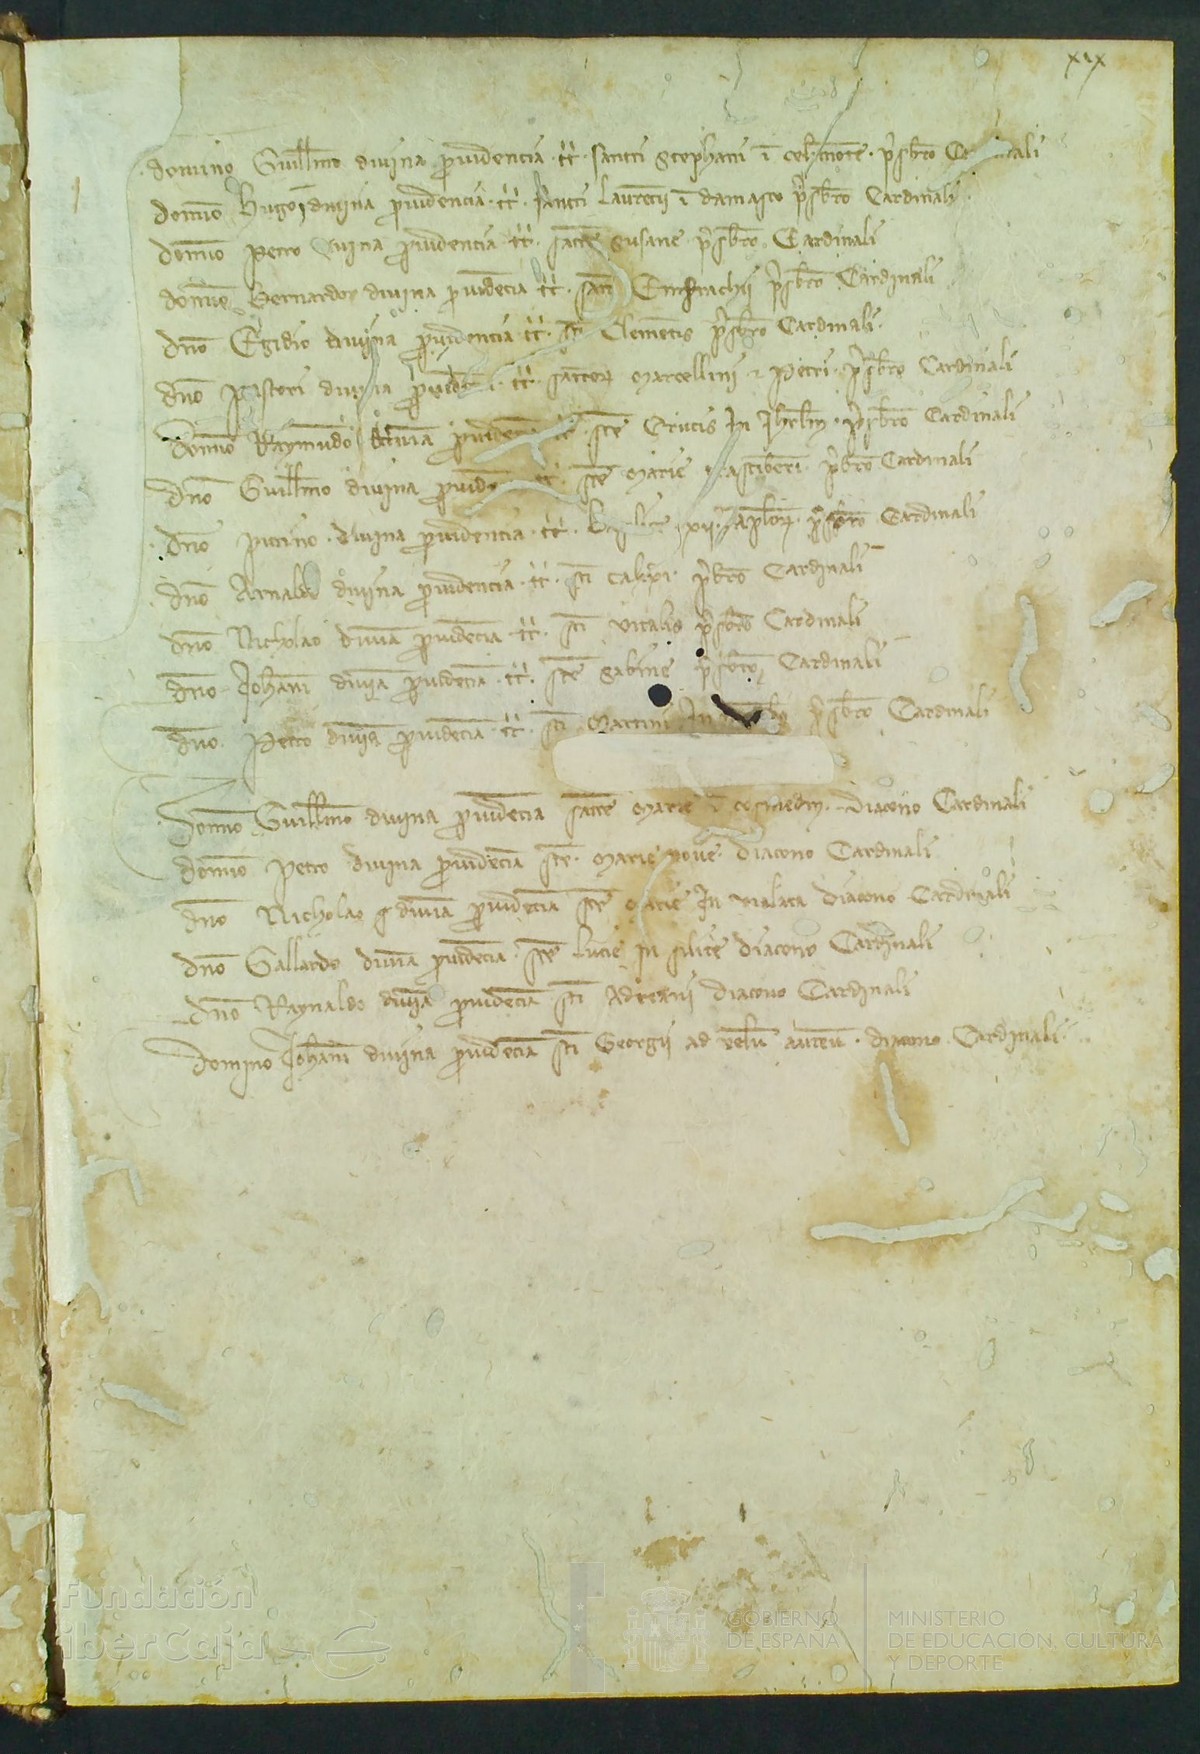 xix
domino Guill̄mo diuina prouidencia .tt̄. sancti stephani ī celimōte. pr̄sbr̄o Cardinali
domīo Hugoī diuina prouidencia .tt̄. sancti laurēcii ī damasco pr̄sbr̄o Cardinali
domīo Petro diuina prouidencia .tt̄. sāctē susane pr̄sbr̄o. Cardinali
domīo Bernardo diuina prouidēcia .tt̄. sāti pr̄sbr̄o Cardinali
dn̄o Egidio diuina prouidencia .tt̄. sc̄i Clemētis pr̄sbr̄o Cardinali.
dn̄o Pastori diuina .tt̄. sāctor̄ marcellini & Petri. pr̄sbr̄o Cardinali
Domīo Raymūdo diuīa sc̄e Crucis In Jhrl̄m. pr̄sbr̄o Cardinali
dn̄o Guill̄mo diuina .tt̄. sc̄e marie trāstiberī. pr̄sbr̄o Cardinali
dn̄o diuina prouidencia .tt̄. xii. ap̄lor̄. pr̄sbr̄o Cardinali
dn̄o Arnaldo diuina prouidencia .tt̄. sc̄i pr̄sbr̄o Cardinali
dn̄o Nicholao diuīa prouidēcia .tt̄. sc̄i vitalis pr̄sbr̄o Cardinali
dn̄o Joh̄ani diuīa prouidēcia .tt̄. sc̄e sabine pr̄sbr̄o Cardinali
dn̄o Petro diuīa prouidēcia .tt̄. sc̄i martini In pr̄sbr̄o Cardinali
Domīo Guill̄mo diuina prouidēcia sāctē marie ī cosmedin. diacono Cardinali
domīo Petro diuina prouidēcia sc̄e. marie noue. diacono Cardinali
dn̄o Nicholao diuīa prouidēcia sc̄e marie In vialata diacono Cardinali
dn̄o Gallardo diuīa prouidēcia. sc̄e lucie In silice diacono Cardinali
dn̄o Raynaldo diuīa prouidēcia sc̄i Adriani diacono Cardinali
Domino Joh̄ani diuina prouidēcia sc̄i Georgii ad velū aureū. diacono Cardinali.
Fundación
iberCaja
GOBIERNO
DE ESPAÑA
MINISTERIO
DE EDUCACIÓN, CULTURA
Y DEPORTE